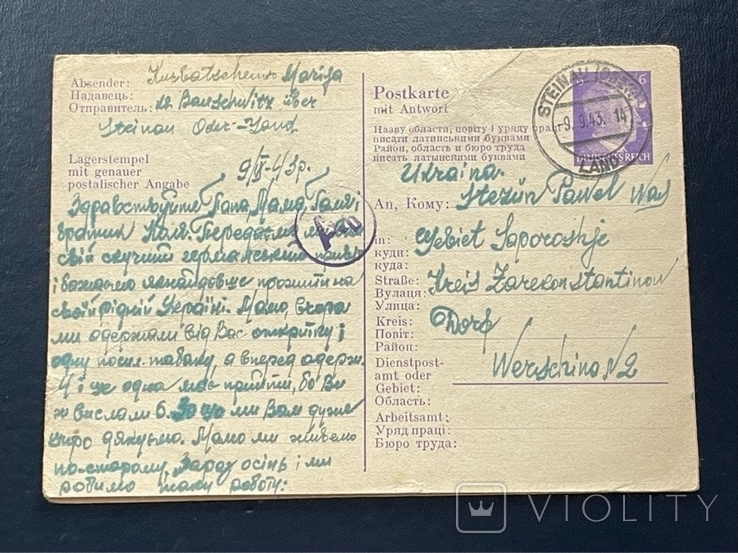 Absender: Mariya
Надавець:
Отправитель: über
Steinau Oder-Land
Lagerstempel
mit genauer
postalischer Angabe
9/ІХ-43р.
Здравствуйте Папа, Мама, Галя і
братик Коля. Передаємо ми
свій скучний германський привіт
і бажаємо якнайдовше прожити на
своїй рідній Україні. Мамо, вчора
ми одержали від Вас открытку і
одну посил. табаку, а вперед одерж.
4 і ще одна має прийти, бо Ви
ж вислали 6. За що ми Вам дуже
щиро дякуємо. Мамо ми живемо
по старому. Зараз осінь і ми
робимо таку роботу:
Postkarte
mit Antwort
Назву области, повіту і уряду праці
писати латинськими буквами
Район, область и бюро труда
писать латынскими буквами
STEINAU (ODER)
-9.9.43. 14
LAND
6
Ukraina
An, Кому: Pawel
in: Gebiet Saporoshje
куди:
куда:
Straße: Kreis Zarekonstantinow
Вулиця:
Улица:
Kreis: Dorf
Повіт:
Район:
Dienstpost-
amt oder Werschina N 2
Gebiet:
Область:
Arbeitsamt:
Уряд праці:
Бюро труда:
VIOLITY